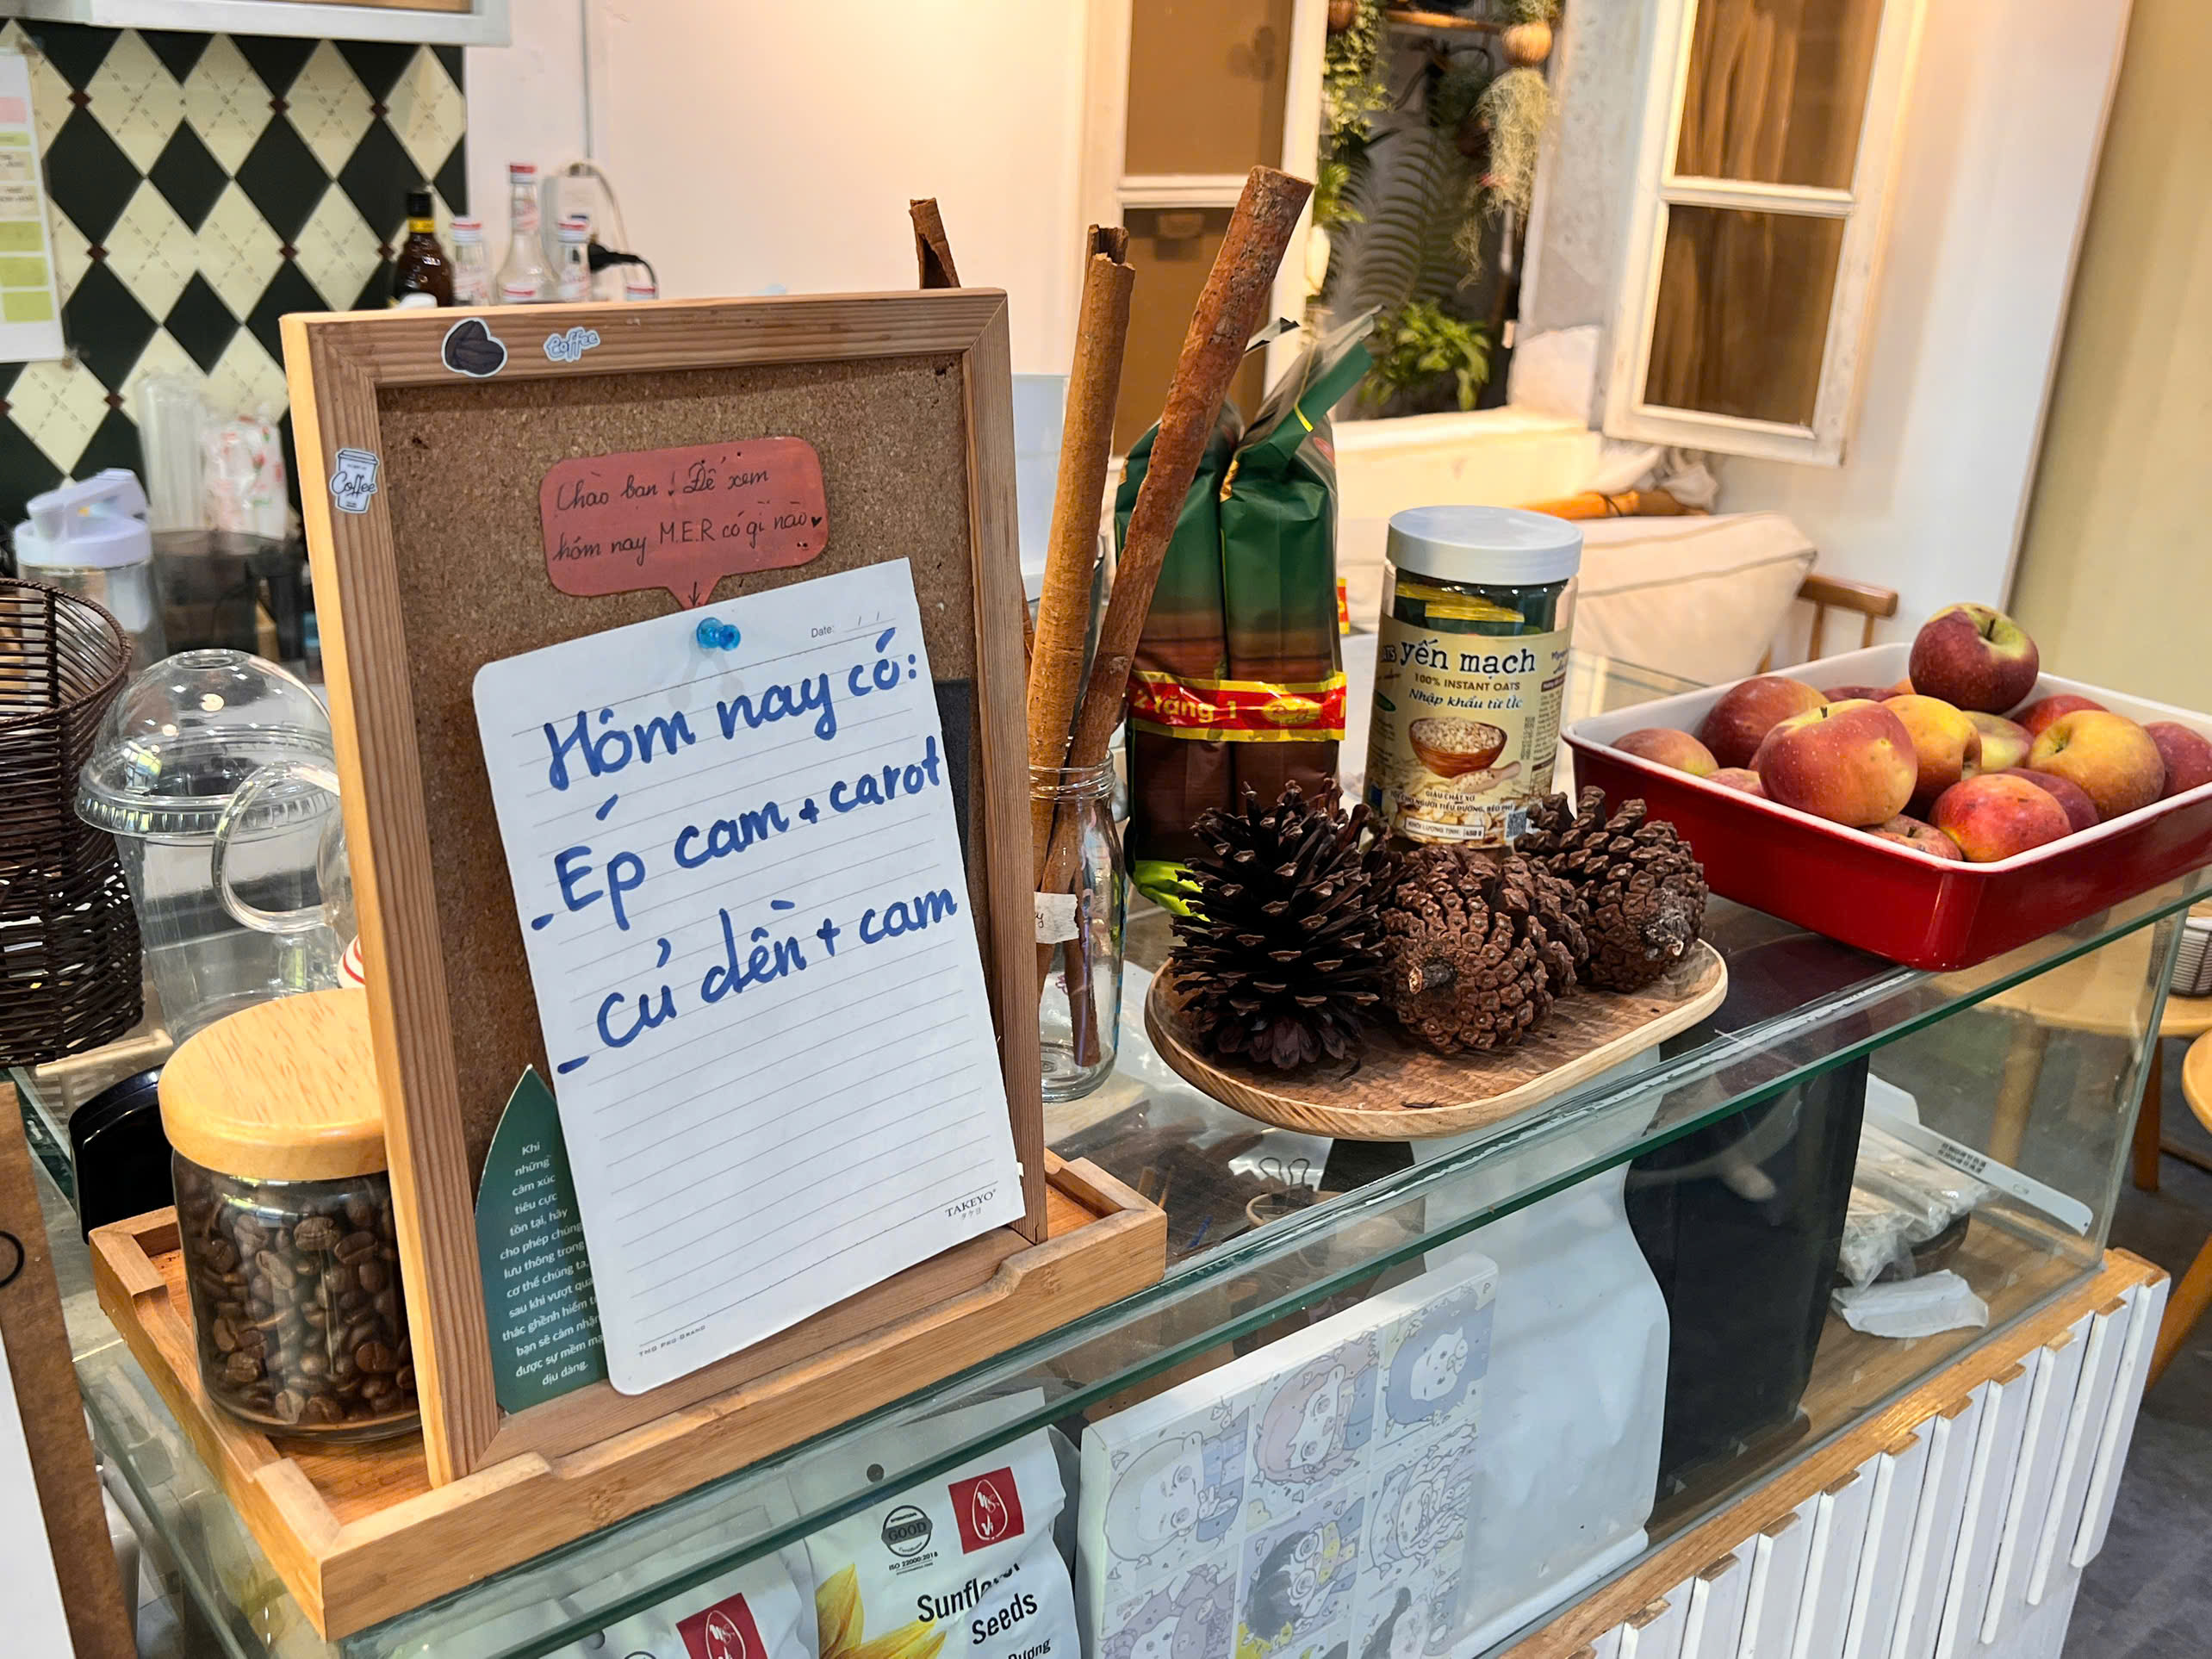 Coffee
Coffee
Chào bạn ! Để xem
hôm nay M.E.R có gì nào
Date: / /
Hôm nay có:
- Ép cam + carot
- Củ dền + cam
TAKEYO
Khi
những
cảm xúc
tiêu cực
tồn tại, hãy
cho phép chúng
lưu thông trong
cơ thể chúng ta,
sau khi vượt qua
thác ghềnh hiểm
bạn sẽ cảm nhận
được sự mềm mại
dịu dàng.
2 tặng 1
yến mạch
100% INSTANT OATS
Nhập khẩu từ Úc
GIÀU CHẤT XƠ
GOOD
ISO 22000:2018
Sunflower
Seeds